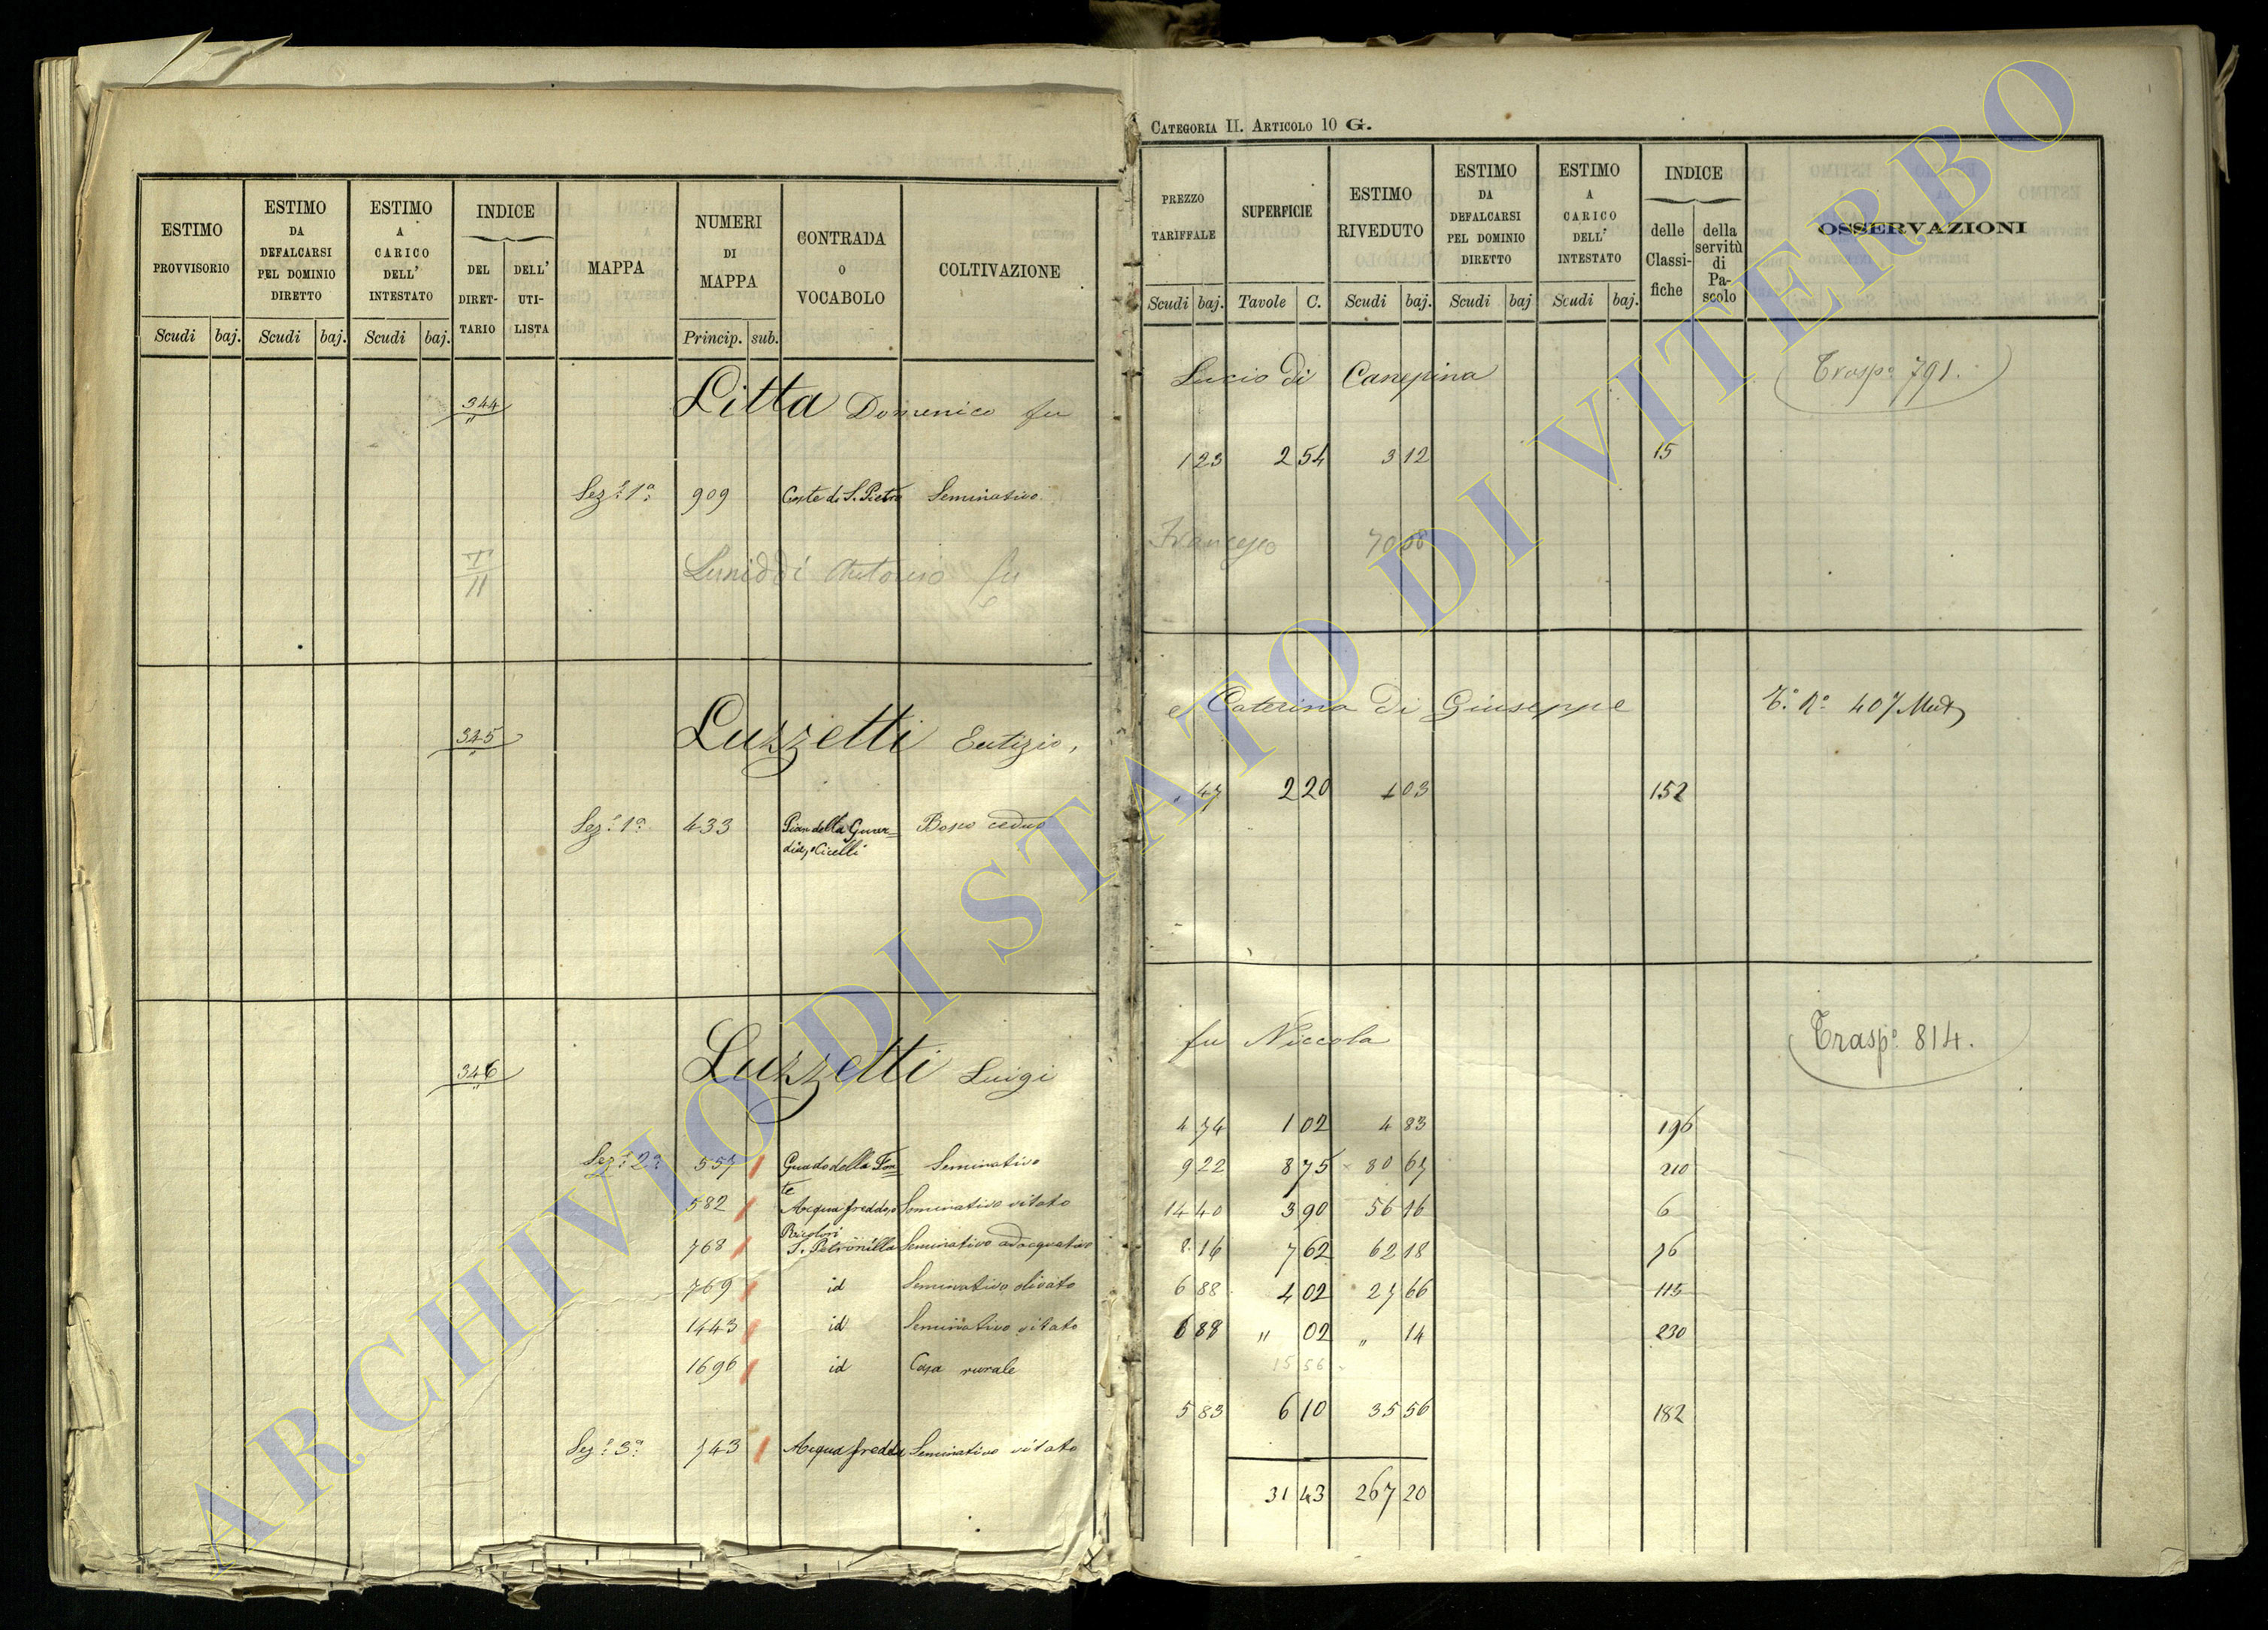 CATEGORIA II. ARTICOLO 10 G.
ESTIMO PROVVISORIO
Scudi baj.
ESTIMO DA DEFALCARSI PEL DOMINIO DIRETTO
Scudi baj.
ESTIMO A CARICO DELL' INTESTATO
Scudi baj.
INDICE
DEL DIRETTARIO
DELL' UTILISTA
MAPPA
NUMERI DI MAPPA
Princip. sub.
CONTRADA O VOCABOLO
COLTIVAZIONE
PREZZO TARIFFALE
Scudi baj.
SUPERFICIE
Tavole C.
ESTIMO RIVEDUTO
Scudi baj.
ESTIMO DA DEFALCARSI PEL DOMINIO DIRETTO
Scudi baj
ESTIMO A CARICO DELL' INTESTATO
Scudi baj.
INDICE
delle Classifiche
della servitù di Pascolo
OSSERVAZIONI
344 Litta Domenico fu Lucio di Canepina Trasp.º 791.
Sez.e 1a 909 Coste di S. Pietro Seminativo 1 23 2 54 3 12 15
Antonio fu Francesco
345 Luzzetti Eutizio, e Caterina di Giuseppe T.º N.º 407
Sez.e 1a 433 Pian della Guardia, Bosco ceduo 47 2 20 1 03 152
346 Luzzetti Luigi fu Niccola Trasp.º 814.
Sez.e 2a 557 Guado della Fonte Seminativo 4 74 1 02 4 83 196
582 Acqua fredda, o Seminativo vitato 9 22 8 75 80 67 210
768 S. Petronilla Seminativo adacquativo 14 40 3 90 56 16 6
769 id Seminativo olivato 8 16 7 62 62 18 76
1443 id Seminativo vitato 6 88 4 02 27 66 113
1696 id Casa rurale 6 88 " 02 " 14 230
15 56
Sez.e 3a 743 Acqua fredda Seminativo vitato 5 83 6 10 35 56 182
31 43 267 20
ARCHIVIO DI STATO DI VITERBO